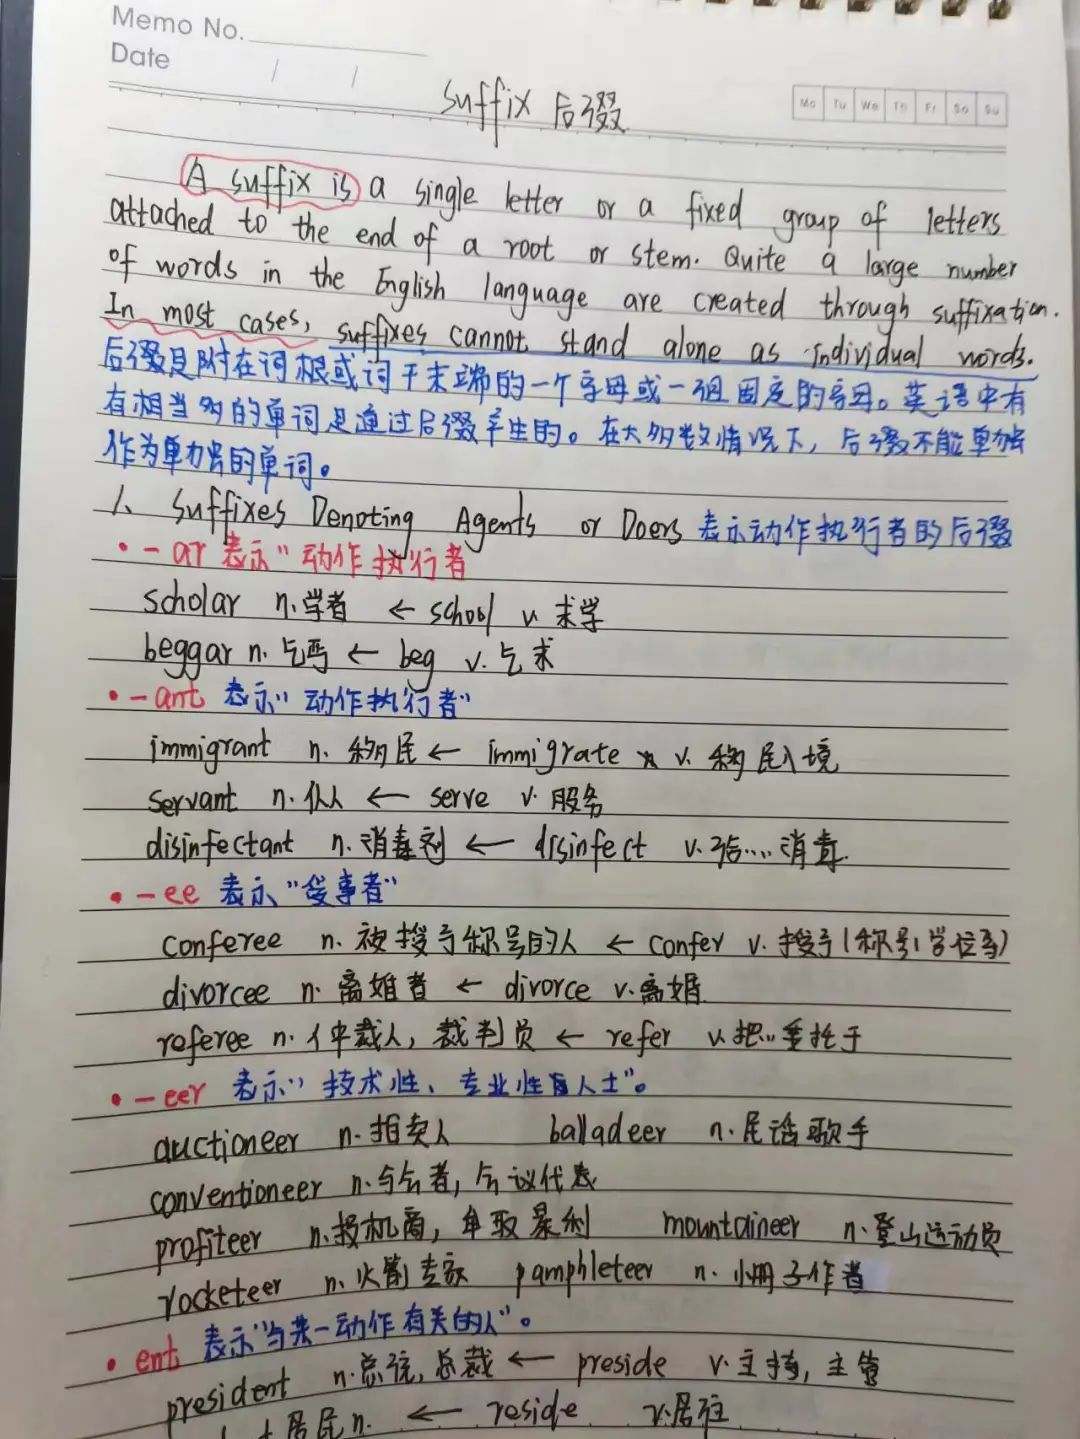 Memo No.
Date / /
Mo Tu We Th Fr Sa Su
suffix 后缀
A suffix is a single letter or a fixed group of letters
attached to the end of a root or stem. Quite a large number
of words in the English language are created through suffixation.
In most cases, suffixes cannot stand alone as individual words.
后缀是附在词根或词干末端的一个字母或一组固定的字母。英语中有
有相当多的单词是通过后缀产生的。在大多数情况下，后缀不能单独
作为单独的单词。
1、Suffixes Denoting Agents or Doers 表示动作执行者的后缀
• -ar 表示"动作执行者
scholar n.学者 ← school v.求学
beggar n.乞丐 ← beg v.乞求
• -ant 表示"动作执行者"
immigrant n.移民 ← immigrate v.移民入境
servant n.仆人 ← serve v.服务
disinfectant n.消毒剂 ← disinfect v.给....消毒.
• -ee 表示"受事者"
conferee n.被授予称号的人 ← confer v.授予(称号,学位等)
divorcee n.离婚者 ← divorce v.离婚
referee n.仲裁人，裁判员 ← refer v.把..委托于
• -eer 表示"技术性、专业性人士"。
auctioneer n.拍卖人 balladeer n.民谣歌手
conventioneer n.与会者，会议代表
profiteer n.投机商，牟取暴利 mountaineer n.登山运动员
rocketeer n.火箭专家 pamphleteer n.小册子作者
• ent 表示"与某一动作有关的人"。
president n.总统，总裁 ← preside v.主持，主管
居民n. ← reside v.居住